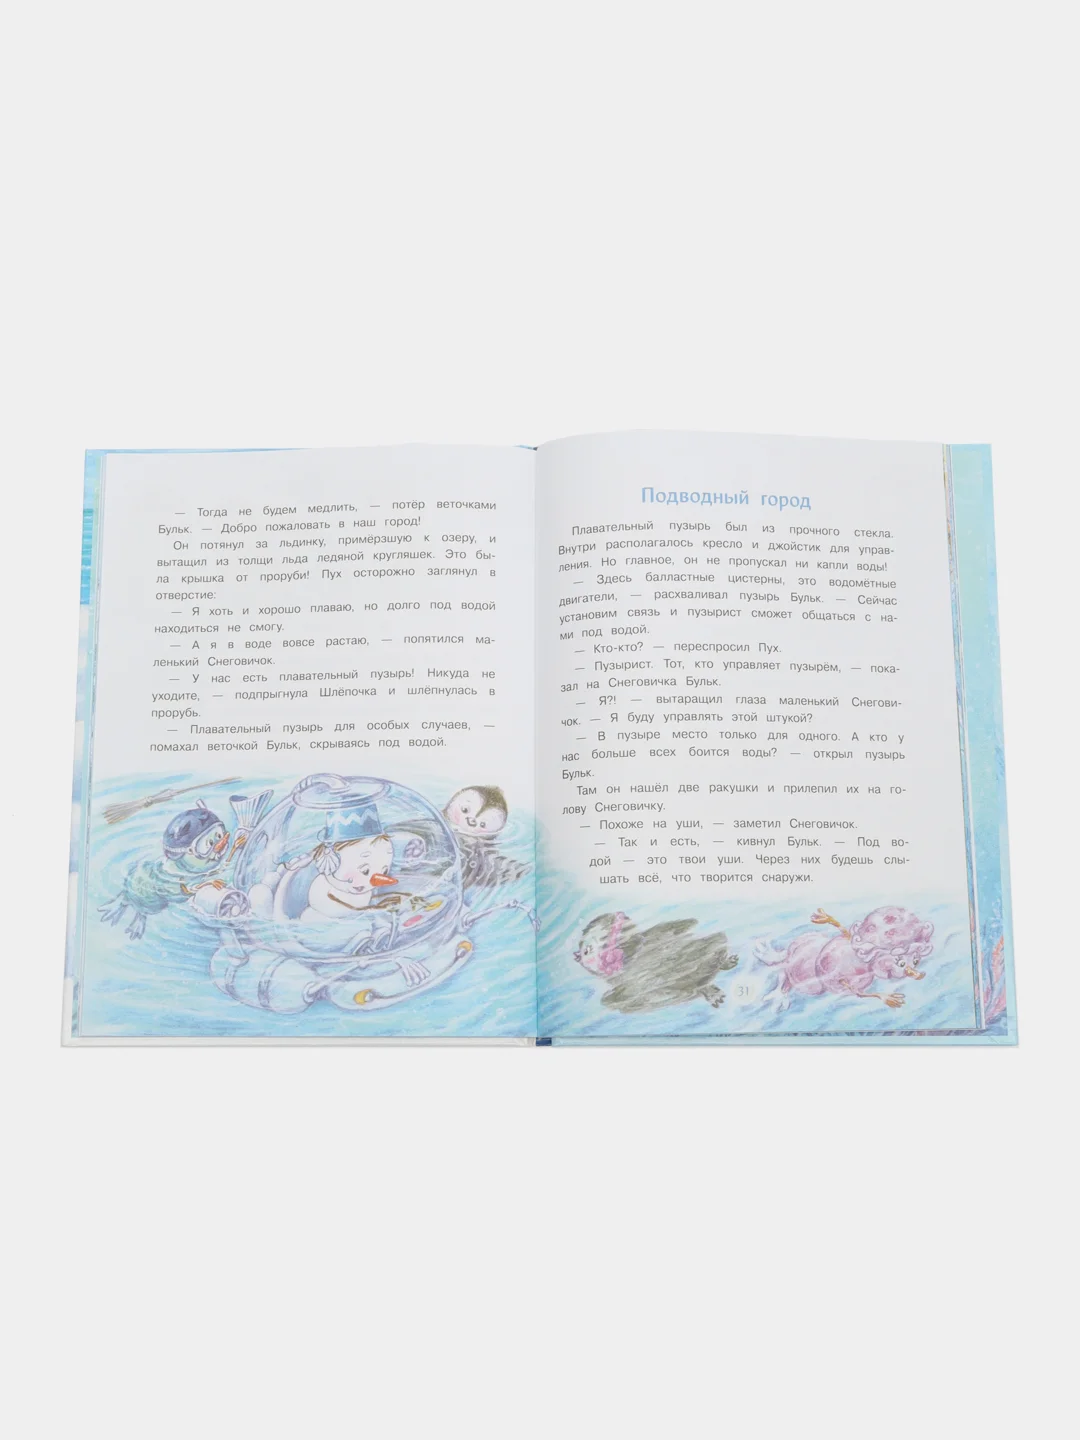 — Тогда не будем медлить, — потёр веточками
Бульк. — Добро пожаловать в наш город!
Он потянул за льдинку, примёрзшую к озеру, и
вытащил из толщи льда ледяной кругляшек. Это бы-
ла крышка от проруби! Пух осторожно заглянул в
отверстие:
— Я хоть и хорошо плаваю, но долго под водой
находиться не смогу.
— А я в воде вовсе растаю, — попятился ма-
ленький Снеговичок.
— У нас есть плавательный пузырь! Никуда не
уходите, — подпрыгнула Шлёпочка и шлёпнулась в
прорубь.
— Плавательный пузырь для особых случаев, —
помахал веточкой Бульк, скрываясь под водой.
Подводный город
Плавательный пузырь был из прочного стекла.
Внутри располагалось кресло и джойстик для управ-
ления. Но главное, он не пропускал ни капли воды!
— Здесь балластные цистерны, это водомётные
двигатели, — расхваливал пузырь Бульк. — Сейчас
установим связь и пузырист сможет общаться с на-
ми под водой.
— Кто-кто? — переспросил Пух.
— Пузырист. Тот, кто управляет пузырём, — пока-
зал на Снеговичка Бульк.
— Я?! — вытаращил глаза маленький Снегови-
чок. — Я буду управлять этой штукой?
— В пузыре место только для одного. А кто у
нас больше всех боится воды? — открыл пузырь
Бульк.
Там он нашёл две ракушки и прилепил их на го-
лову Снеговичку.
— Похоже на уши, — заметил Снеговичок.
— Так и есть, — кивнул Бульк. — Под во-
дой — это твои уши. Через них будешь слы-
шать всё, что творится снаружи.
31